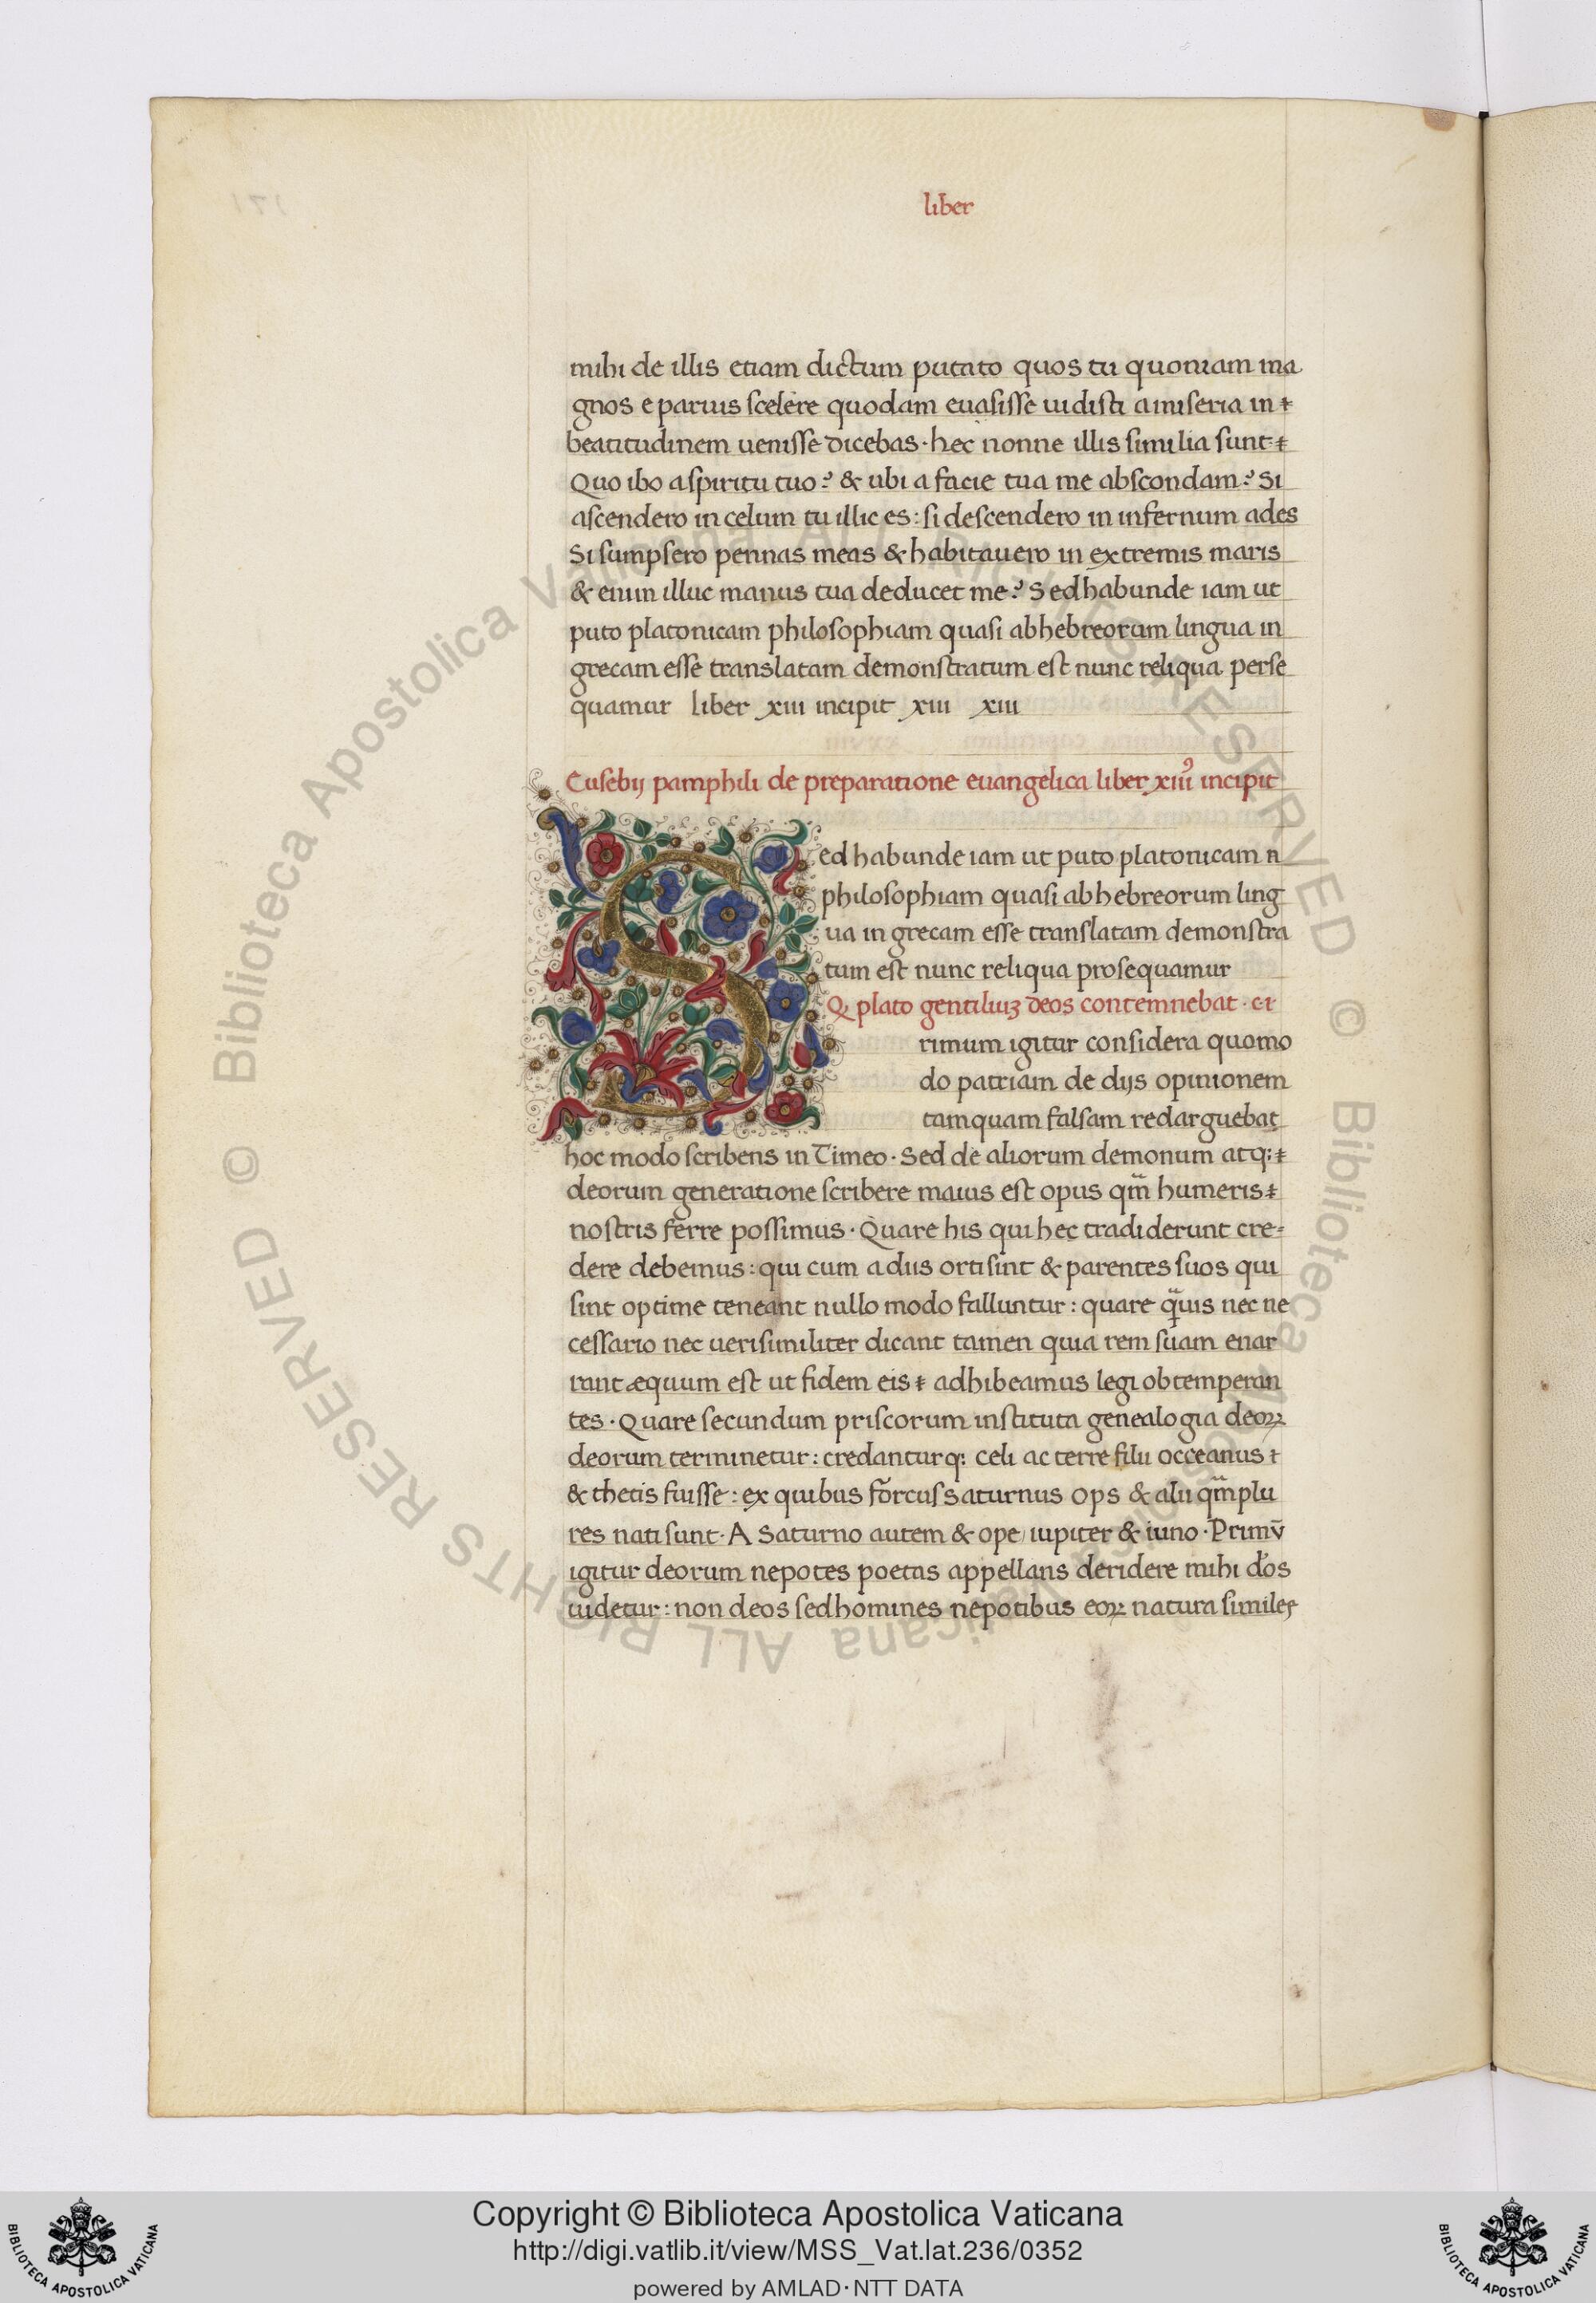 liber
mihi de illis etiam dictum putato quos tu quoniam ma
gnos e paruis scelere quodam euasisse uidisti a miseria in
beatitudinem uenisse dicebas · hec nonne illis similia sunt
Quo ibo a spiritu tuo? & ubi a facie tua me abscondam? Si
ascendero in celum tu illic es: si descendero in infernum ades
Si sumpsero pennas meas & habitauero in extremis maris
& enim illuc manus tua deducet me? Sed habunde iam ut
puto platonicam philosophiam quasi ab hebreorum lingua in
grecam esse translatam demonstratum est nunc reliqua perse
quamur liber xiii incipit xiii xiii
Eusebij pamphili de preparatione euangelica liber xiiiꝰ incipit
Sed habunde iam ut puto platonicam
philosophiam quasi ab hebreorum ling
ua in grecam esse translatam demonstra
tum est nunc reliqua prosequamur
Q plato gentiliuꝫ deos contemnebat · c · i
rimum igitur considera quomo
do patriam de dijs opinionem
tamquam falsam redarguebat
hoc modo scribens in Timeo · Sed de aliorum demonum atq:
deorum generatione scribere maius est opus qm̄ humeris
nostris ferre possimus · Quare his qui hec tradiderunt cre=
dere debemus: qui cum a diis orti sint & parentes suos qui
sint optime teneant nullo modo falluntur: quare q̄uis nec ne
cessario nec uerisimiliter dicant tamen quia rem suam enar
rant æquum est ut fidem eis adhibeamus legi obtemperan
tes · Quare secundum priscorum instituta genealogia deoꝝ
deorum terminetur: credanturq: celi ac terre filii occeanus
& thetis fuisse: ex quibus forcus saturnus ops & alii qm̄plu
res nati sunt · A Saturno autem & ope iupiter & iuno · Primū
igitur deorum nepotes poetas appellans deridere mihi d'os
uidetur: non deos sed homines nepotibus eoꝝ natura similes
Copyright © Biblioteca Apostolica Vaticana
http://digi.vatlib.it/view/MSS_Vat.lat.236/0352
powered by AMLAD·NTT DATA
BIBLIOTECA APOSTOLICA VATICANA
BIBLIOTECA APOSTOLICA VATICANA
© Biblioteca Apostolica Vaticana ALL RIGHTS RESERVED
© Biblioteca Apostolica Vaticana ALL RIGHTS RESERVED